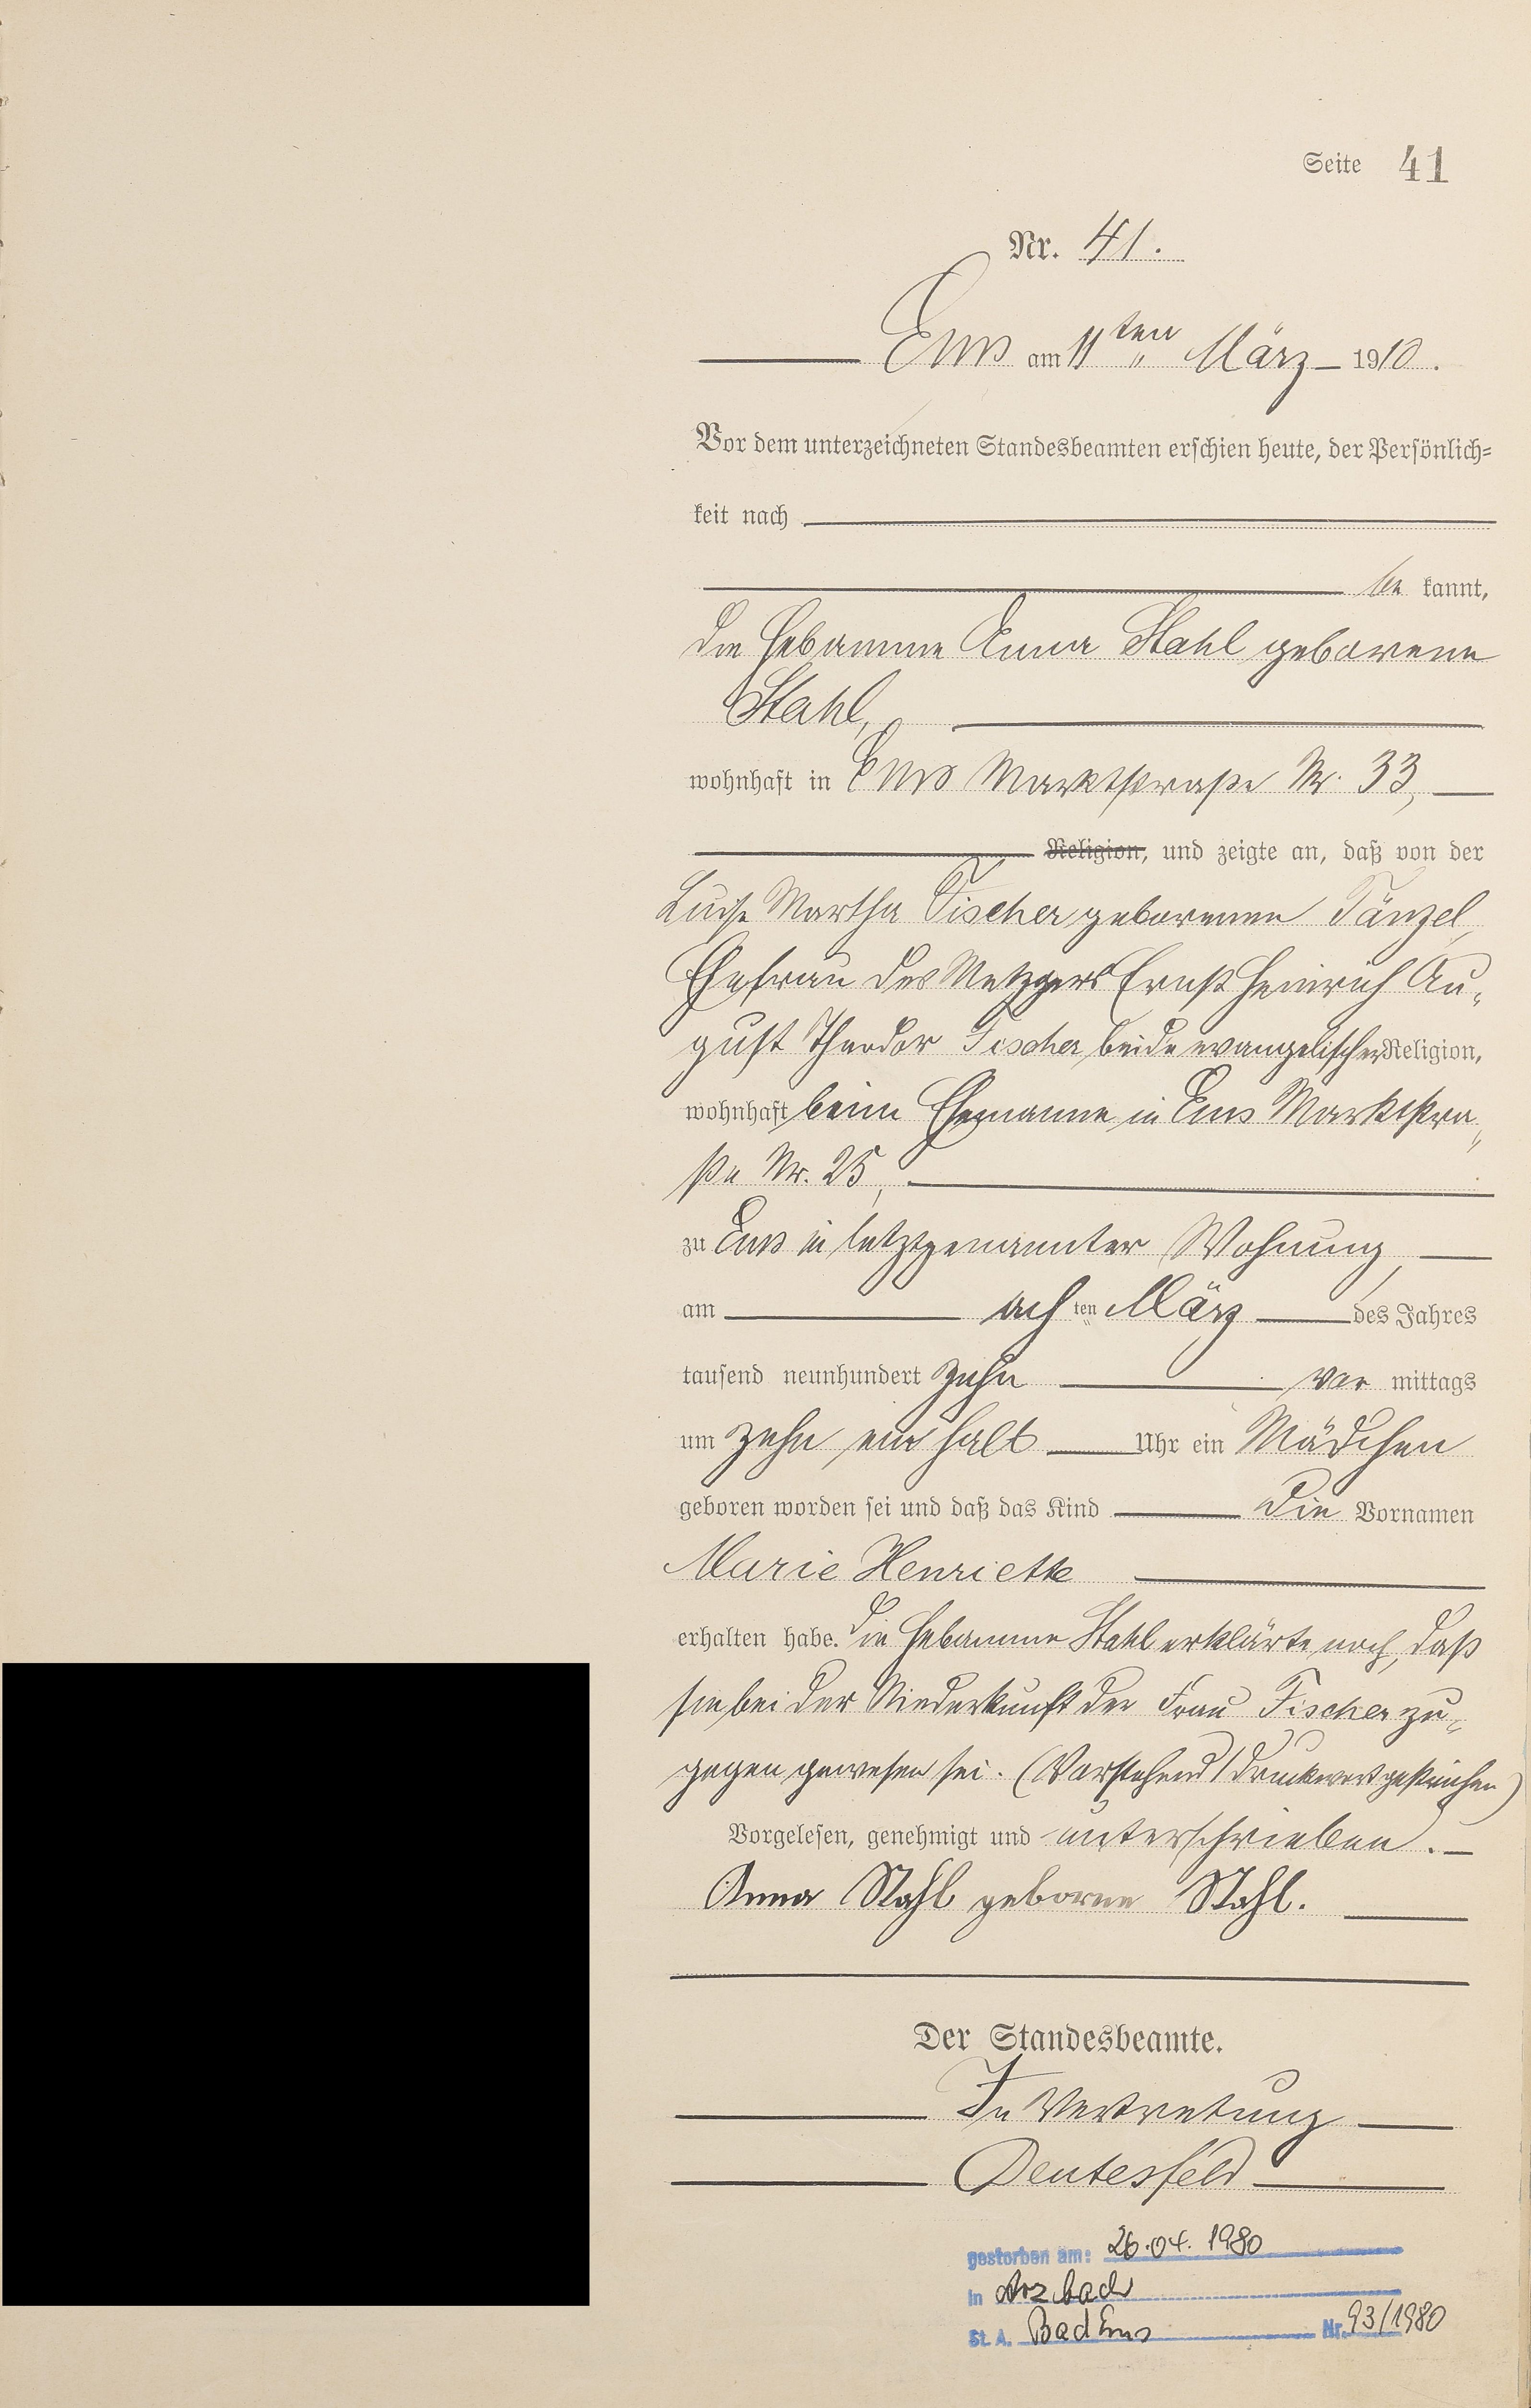 Seite 41
Nr. 41.
Ems am 11ten März 1910.
Vor dem unterzeichneten Standesbeamten erschien heute, der Persönlich=
keit nach
be kannt,
die Hebamme Anna Stahl geborene
Stahl,
wohnhaft in Ems Marktstraße Nr. 33,
Religion, und zeigte an, daß von der
Luise Martha Fischer geborenen Tänzel,
Ehefrau des Metzgers Ernst Heinrich Au-
gust Theodor Fischer beide evangelischer Religion,
wohnhaft beim Ehemanne in Ems Marktstra-
ße Nr. 25,
zu Ems in letztgenannter Wohnung,
am achten März des Jahres
tausend neunhundert zehn vor mittags
um zehn ein halb Uhr ein Mädchen
geboren worden sei und daß das Kind die Vornamen
Marie Henriette
erhalten habe. Die Hebamme Stahl erklärte noch, daß
sie bei der Niederkunft der Frau Fischer zu-
gegen gewesen sei. (Vorstehend 1 Druckwort gestrichen)
Vorgelesen, genehmigt und unterschrieben.
Anna Stahl geborne Stahl.
Der Standesbeamte.
In Vertretung
Deutesfeld
gestorben am: 26.04.1980
in Arzbach
St. A. Bad Ems Nr. 93/1980